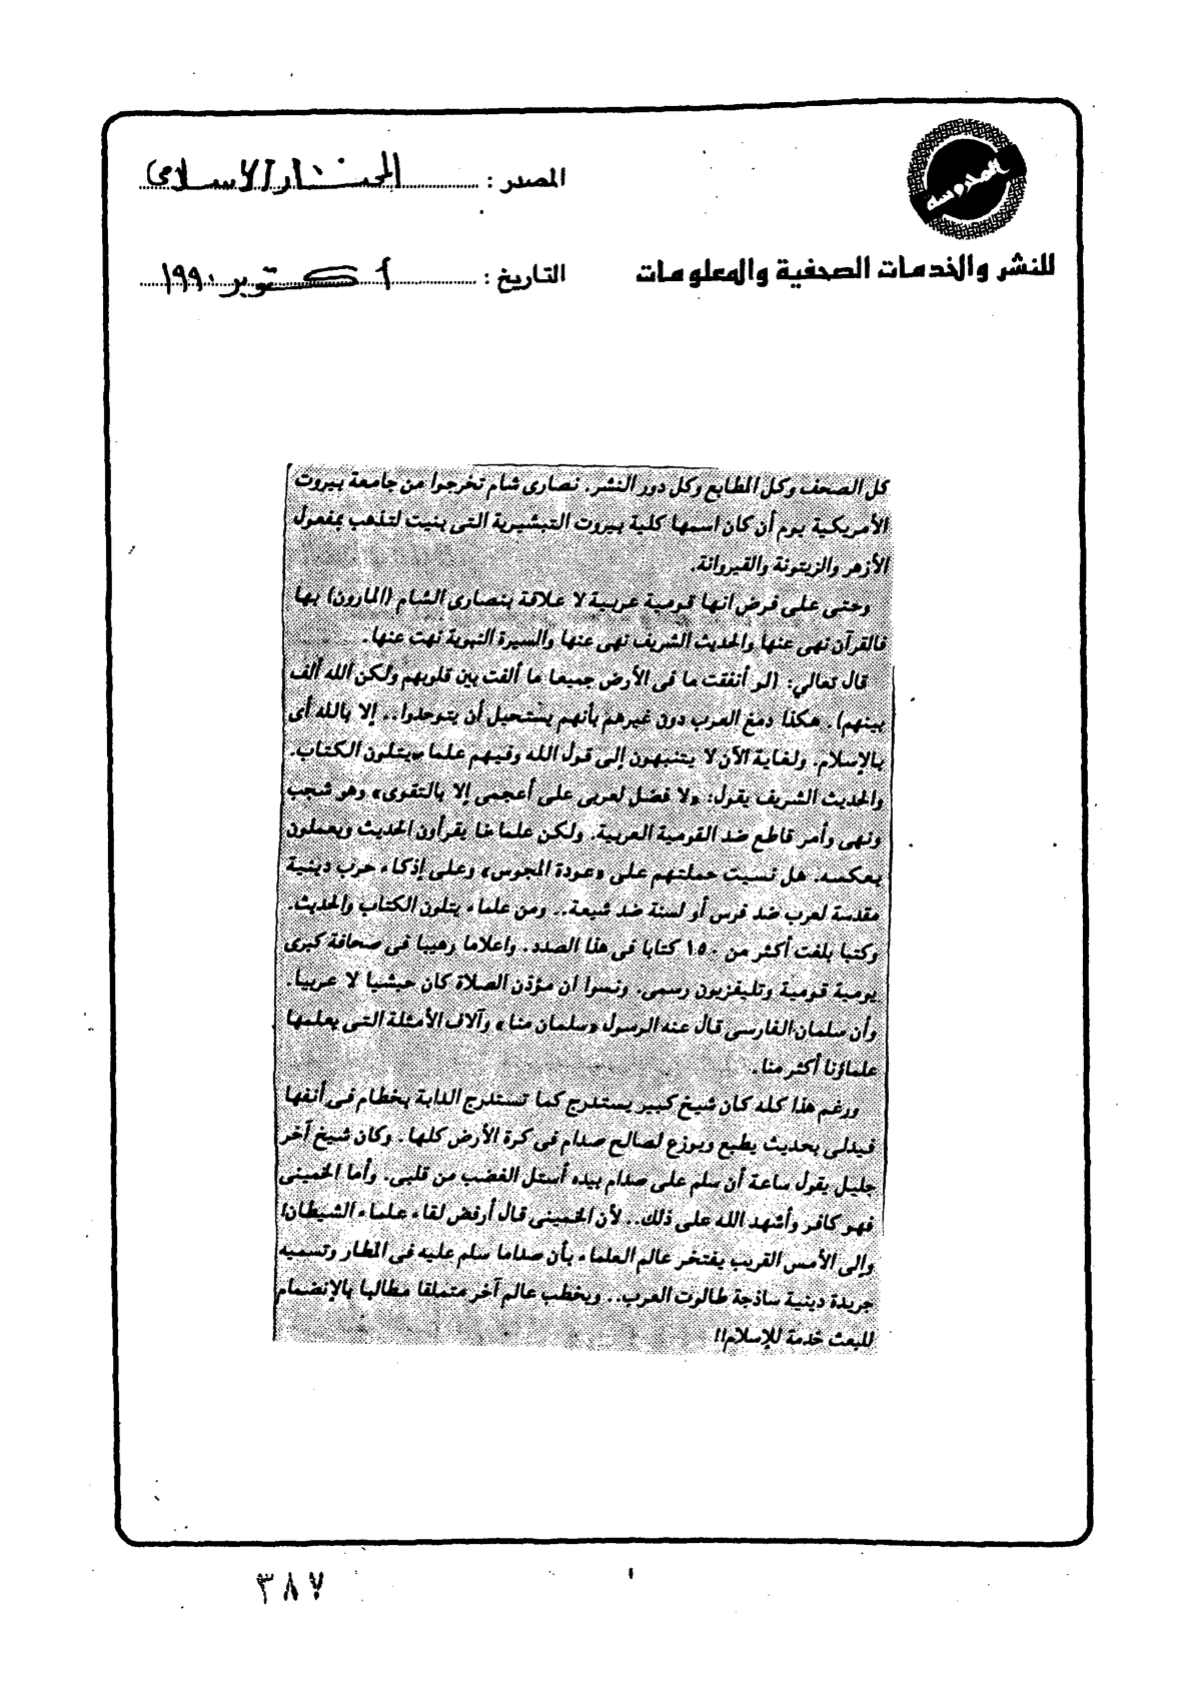 المدوسة
المصدر : المختار الاسلامى
للنشر والخدمات الصحفية والمعلومات
التاريخ : أكتوبر ١٩٩٠
كل الصحف وكل المطابع وكل دور النشر. نصارى شام تخرجوا من جامعة بيروت
الأمريكية يوم أن كان اسمها كلية بيروت التبشيرية التى بنيت لتذهب بمفعول
الأزهر والزيتونة والقيروانة.
وحتى على فرض انها قومية عربية لا علاقة بنصارى الشام (المارون) بها
فالقرآن نهى عنها والحديث الشريف نهى عنها والسيرة النبوية نهت عنها.
قال تعالي: (لو أنفقت ما فى الأرض جميعا ما ألفت بين قلوبهم ولكن الله ألف
بينهم). هكذا دمغ العرب دون غيرهم بأنهم يستحيل أن يتوحدوا.. إلا بالله أى
بالإسلام. ولغاية الآن لا يتنبهون إلى قول الله وفيهم علماء يتلون الكتاب.
والحديث الشريف يقول: «لا فضل لعربى على أعجمى إلا بالتقوى» وهو شجب
ونهى وأمر قاطع ضد القومية العربية. ولكن علماءنا يقرأون الحديث ويعملون
بعكسه. هل نسيت حملتهم على «عودة المجوس» وعلى إذكاء حرب دينية
مقدسة لعرب ضد فرس أو لسنة ضد شيعة.. ومن علماء يتلون الكتاب والحديث.
وكتبا بلغت أكثر من ١٥٠ كتابا فى هذا الصدد. واعلاما رهيبا فى صحافة كبرى
يومية قومية وتليفزيون رسمى. ونسوا ان مؤذن الصلاة كان حبشيا لا عربيا.
وأن سلمان الفارسى قال عنه الرسول «سلمان منا» وآلاف الأمثلة التى يعلمها
علماؤنا أكثر منا.
ورغم هذا كله كان شيخ كبير يستدرج كما تستدرج الدابة بخطام فى أنفها
فيدلى بحديث يطبع ويوزع لصالح صدام فى كرة الأرض كلها. وكان شيخ آخر
جليل يقول ساعة أن سلم على صدام بيده أستل الغضب من قلبى. وأما الخمينى
فهو كافر وأشهد الله على ذلك.. لأن الخمينى قال أرفض لقاء علماء الشيطان!
وإلى الأمس القريب يفتخر عالم العلماء بأن صداما سلم عليه فى المطار وتسميه
جريدة دينية ساذجة طالوت العرب.. ويخطب عالم آخر متملقا مطالبا بالإنضمام
للبعث خدمة للإسلام!!
٣٨٧